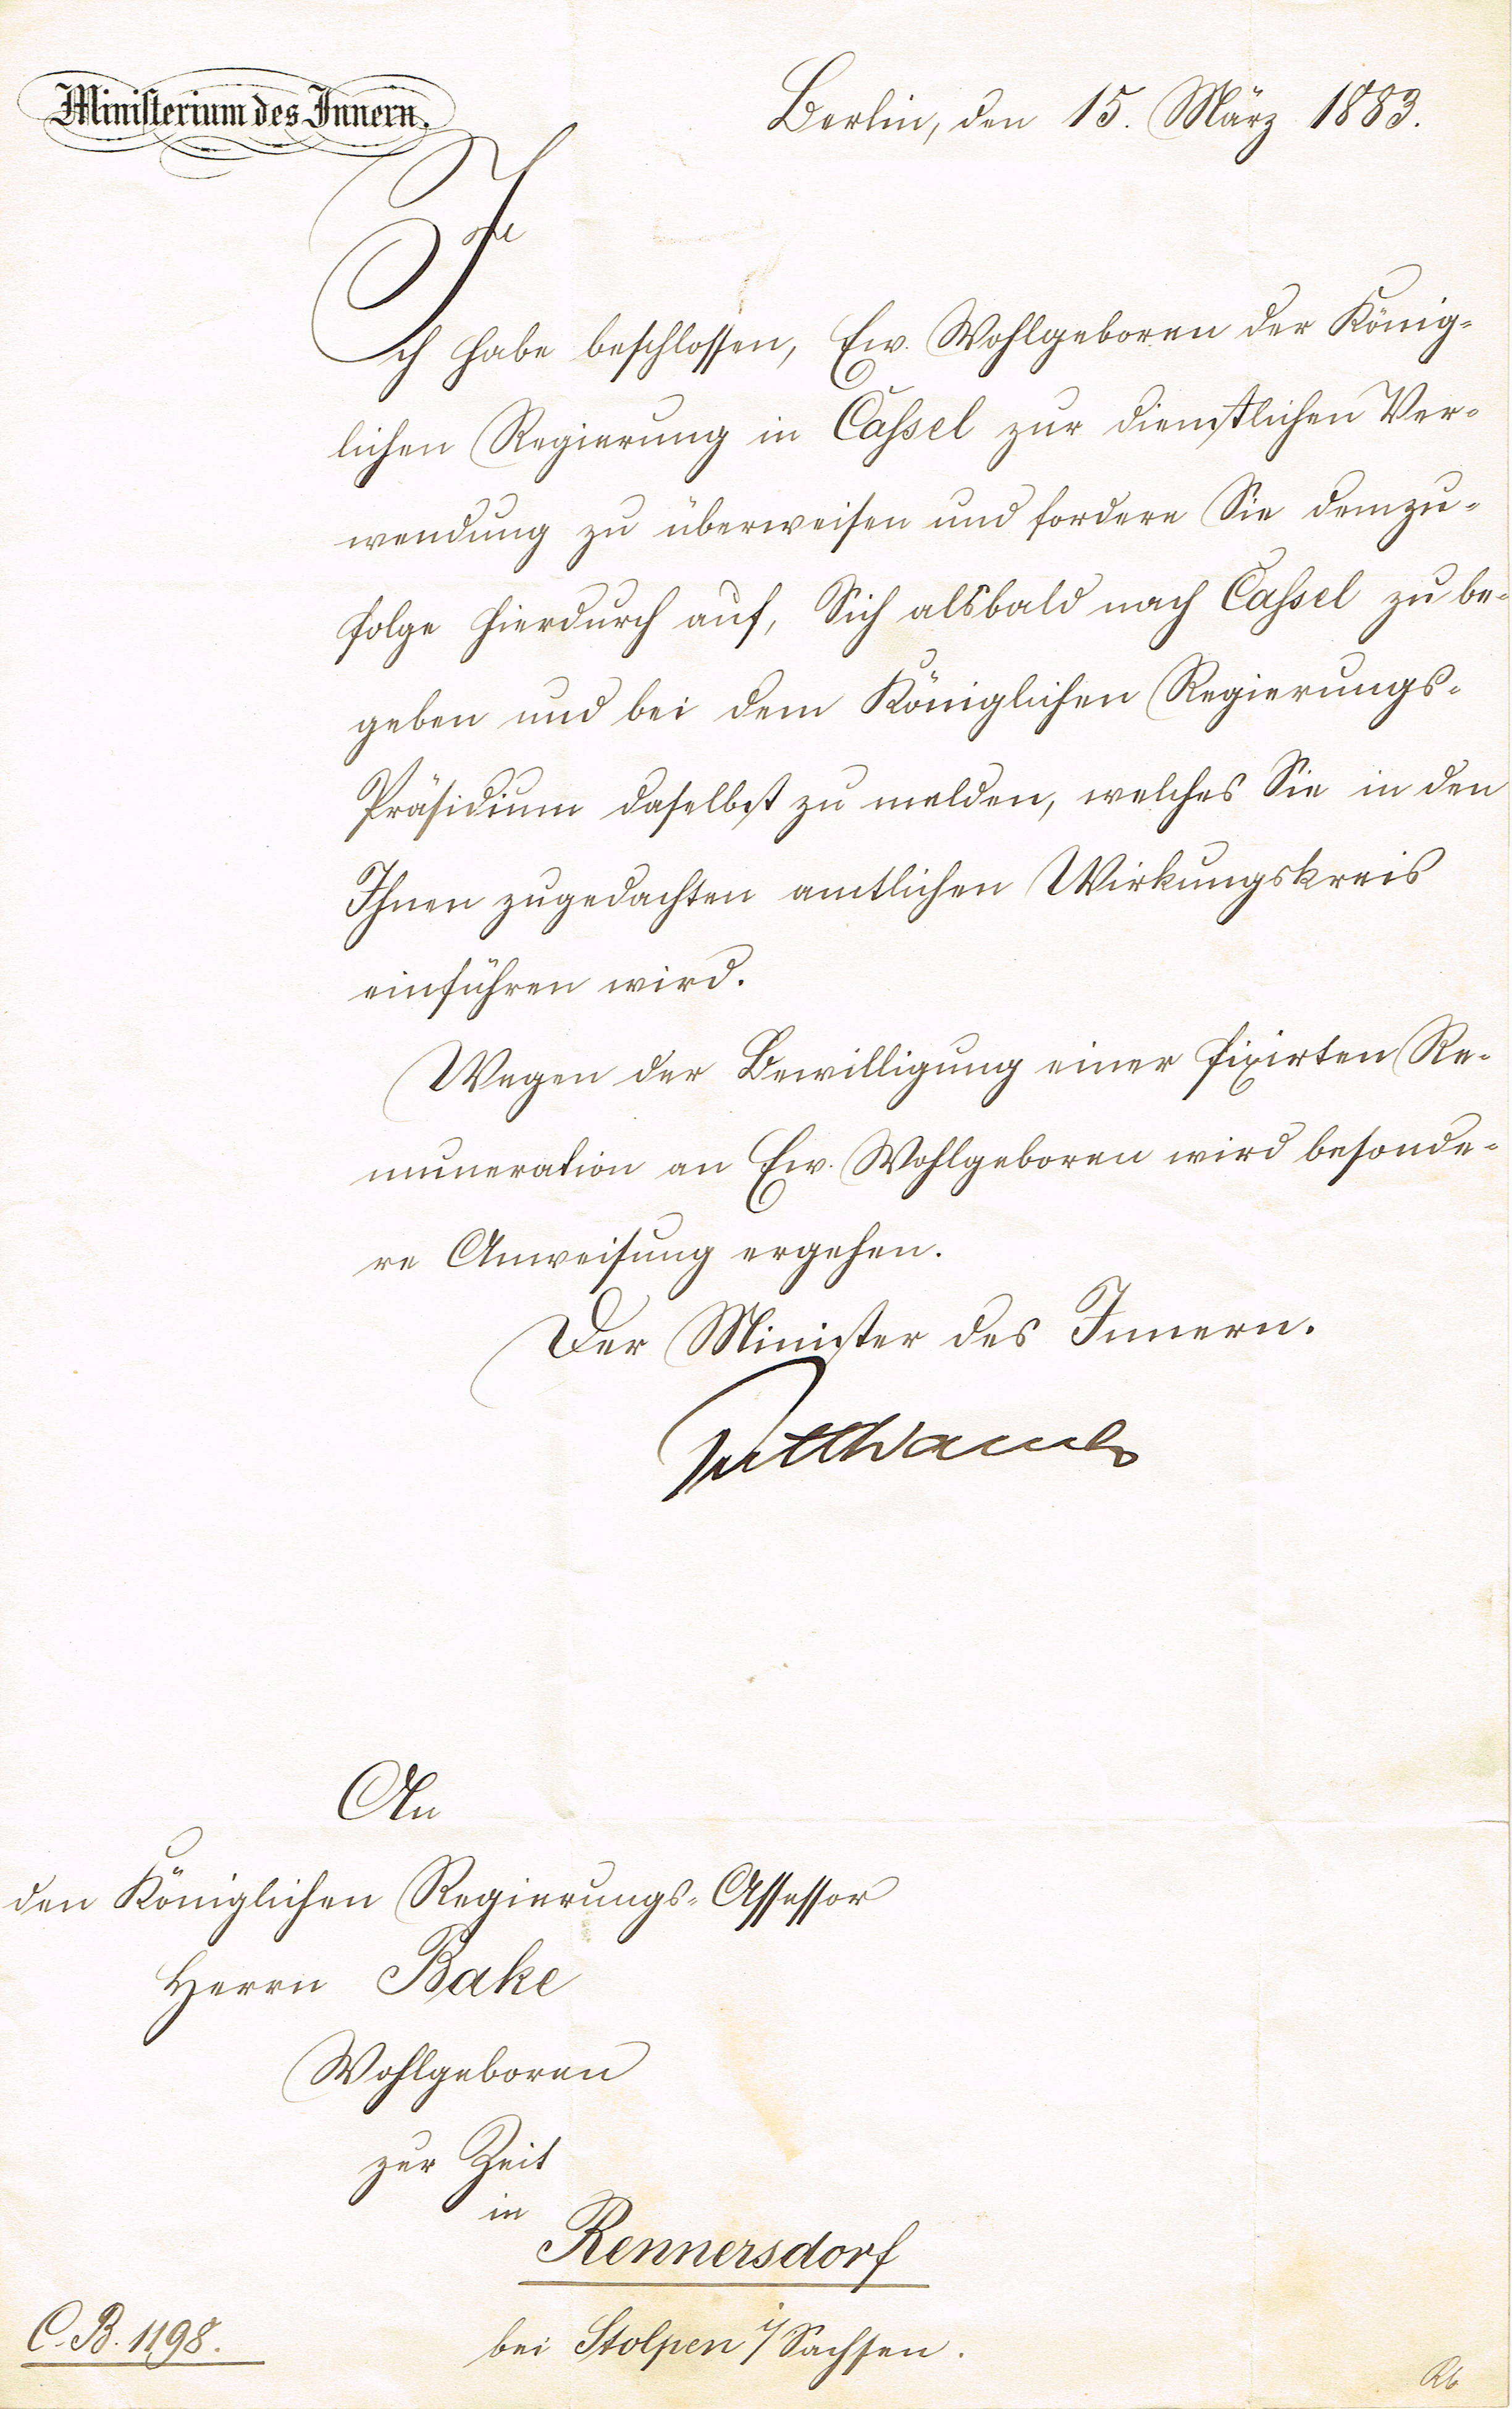 Ministerium des Innern.
Berlin, den 15. März 1883.
Ich habe beschlossen, Ew. Wohlgeboren der König-
lichen Regierung in Cassel zur dienstlichen Ver-
wendung zu überweisen und fordere Sie demzu-
folge hierdurch auf, Sich alsbald nach Cassel zu be-
geben und bei dem Königlichen Regierungs-
Präsidium daselbst zu melden, welches Sie in den
Ihnen zugedachten amtlichen Wirkungskreis
einführen wird.
Wegen der Bewilligung einer fixirten Re-
muneration an Ew. Wohlgeboren wird besonde-
re Anweisung ergehen.
Der Minister des Innern.
Puttkamer
An
den Königlichen Regierungs-Assessor
Herrn Bake
Wohlgeboren
zur Zeit
in
Rennersdorf
bei Stolpen i/Sachsen.
C. B. 1198.